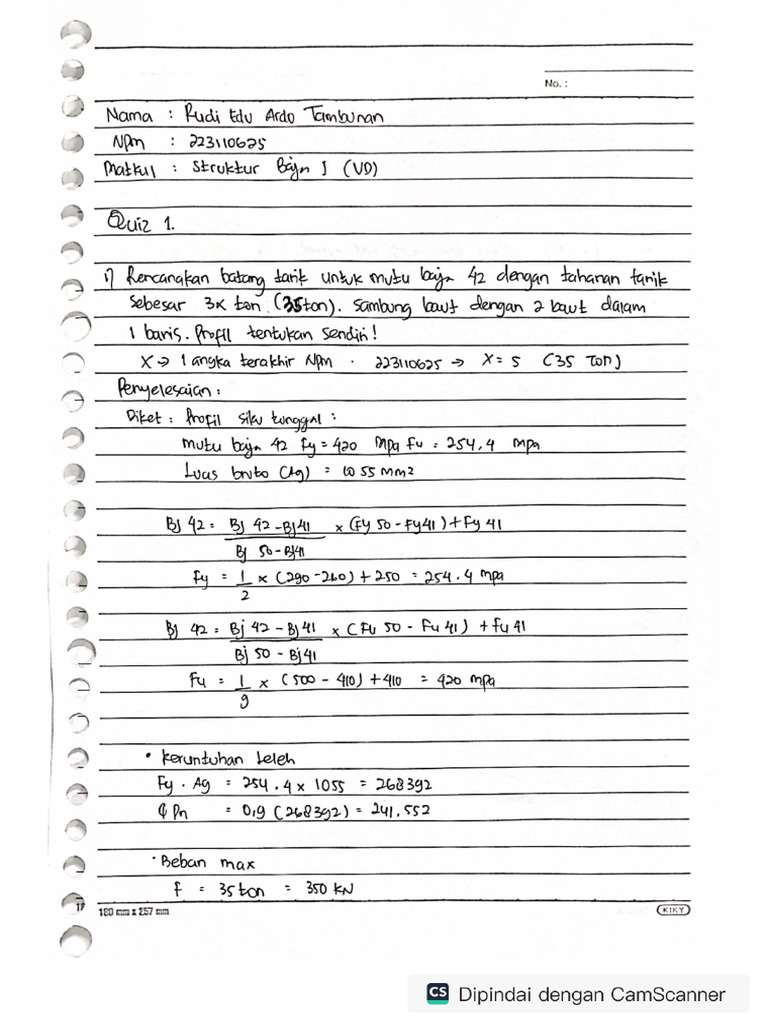 No. :
Nama : Rudi Edu Ardo Tambunan
NPm : 223110625
Matkul : Struktur Baja I (VD)
Quiz 1.
1) Rencanakan batang tarik untuk mutu baja 42 dengan tahanan tarik
sebesar 3x ton (35ton). Sambung baut dengan 2 baut dalam
1 baris. Profil tentukan sendiri!
X → 1 angka terakhir NPm . 223110625 → X = 5 (35 Ton)
Penyelesaian :
Diket : Profil siku tunggal :
mutu baja 42 fy = 420 mpa fu = 254,4 mpa
Luas bruto (Ag) = 1055 mm2
Bj 42 = Bj 42 - Bj 41 x (Fy 50 - Fy 41) + Fy 41
Bj 50 - Bj 41
Fy = 1 x (290 - 260) + 250 = 254.4 mpa
2
Bj 42 = Bj 42 - Bj 41 x (Fu 50 - Fu 41) + fu 41
Bj 50 - Bj 41
Fu = 1 x (500 - 410) + 410 = 420 mpa
9
• Keruntuhan Leleh
Fy . Ag = 254.4 x 1055 = 268392
ϕ Pn = 0,9 (268392) = 241.552
• Beban max
f = 35 ton = 350 KN
17 180 mm x 257 mm
KIKY
CS Dipindai dengan CamScanner